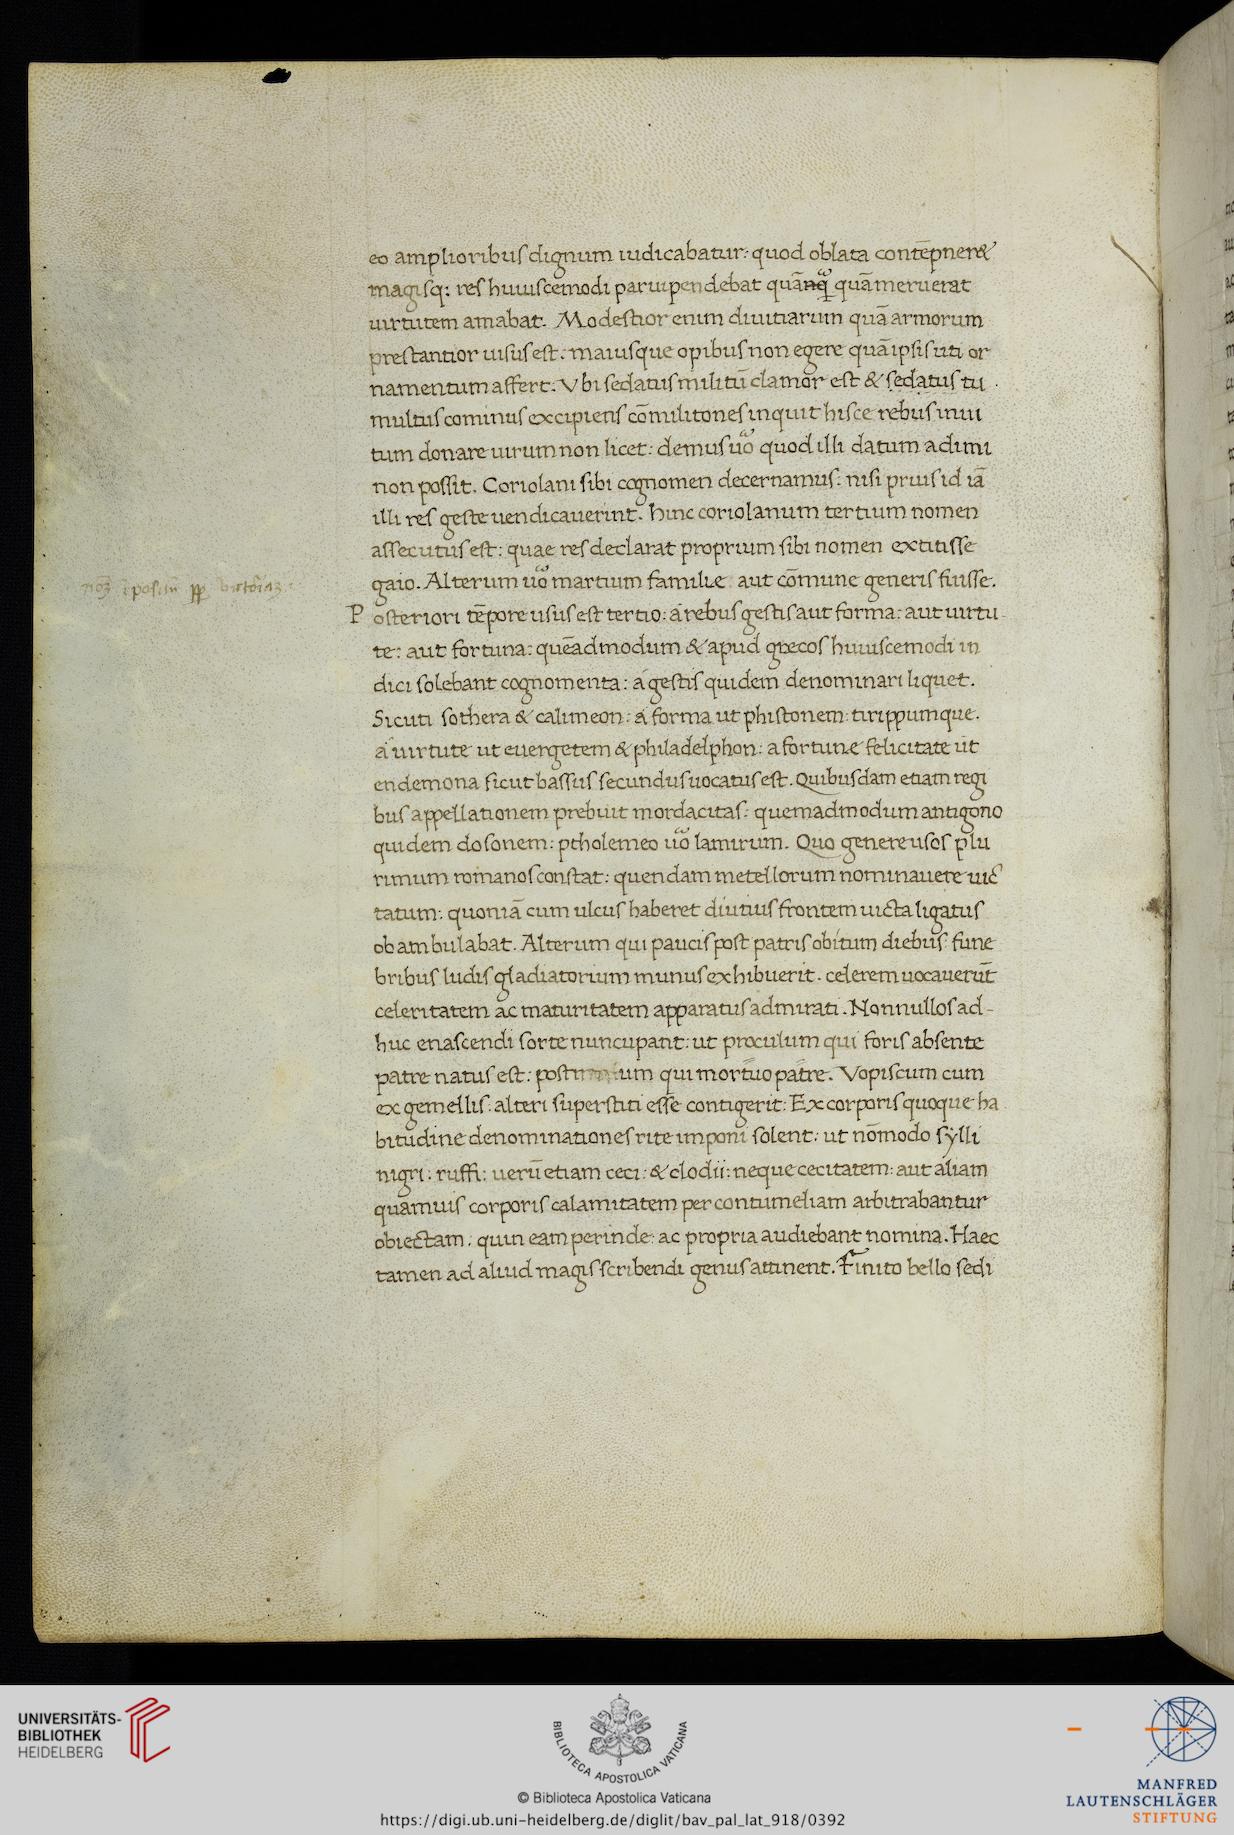 eo amplioribus dignum iudicabatur: quod oblata contēpner&
magisq; res huiuscemodi paruipendebat quā quā meruerat
uirtutem amabat. Modestior enim diuitiarum quā armorum
prestantior uisus est. maiusque opibus non egere quā ipsis uti or
namentum affert. Vbi sedatus militū clamor est & sedatus tu
multus cominus excipiens cōmilitones inquit hisce rebus inui
tum donare uirum non licet: demus uō quod illi datum adimi
non possit. Coriolani sibi cognomen decernamus: nisi prius id iā
illi res geste uendicauerint. hinc coriolanum tertium nomen
assecutus est: quae res declarat proprium sibi nomen extitisse
gaio. Alterum uō martium familie aut cōmune generis fuisse.
Posteriori tēpore usus est tertio: a rebus gestis aut forma: aut uirtu
te: aut fortuna: quēadmodum & apud grecos huiuscemodi in
dici solebant cognomenta: a gestis quidem denominari liquet.
Sicuti sothera & calineon: a forma ut phistonem: tirippumque.
a uirtute ut euergetem & philadelphon: a fortune felicitate ut
endemona sicut bassus secundus uocatus est. Quibusdam etiam regi
bus appellationem prebuit mordacitas: quemadmodum antigono
quidem dosonem: ptholemeo uō lamirum. Quo genere usos plu
rimum romanos constat: quendam metellorum nominauere uic
tatum: quoniā cum ulcus haberet diutius frontem uicta ligatus
obambulabat. Alterum qui paucis post patris obitum diebus: fune
bribus ludis gladiatorium munus exhibuerit. celerem uocauerūt
celeritatem ac maturitatem apparatus admirati. Nonnullos ad-
huc enascendi sorte nuncupant: ut proculum qui foris absente
patre natus est: qui mortuo patre. Vopiscum cum
ex gemellis: alteri superstiti esse contigerit: Ex corporis quoque ha
bitudine denominationes rite imponi solent: ut nōmodo sylli
nigri: ruffi: uerū etiam ceci: & clodii: neque cecitatem: aut aliam
quamuis corporis calamitatem per contumeliam arbitrabantur
obiectam: quin eam perinde: ac propria audiebant nomina. Haec
tamen ad aliud magis scribendi genus attinent. Finito bello sedi
UNIVERSITÄTS-
BIBLIOTHEK
HEIDELBERG
BIBLIOTECA APOSTOLICA VATICANA
© Biblioteca Apostolica Vaticana
https://digi.ub.uni-heidelberg.de/diglit/bav_pal_lat_918/0392
MANFRED
LAUTENSCHLÄGER
STIFTUNG